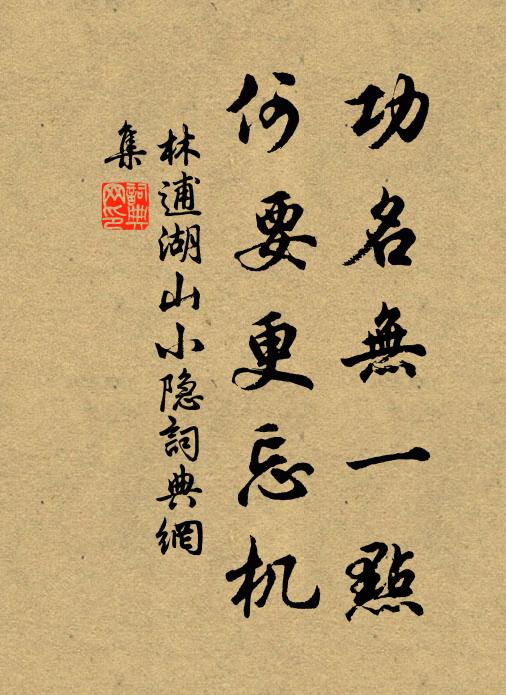 功名無一點
何要更忘机
林逋湖山小隐詞典網
集
詞典网印